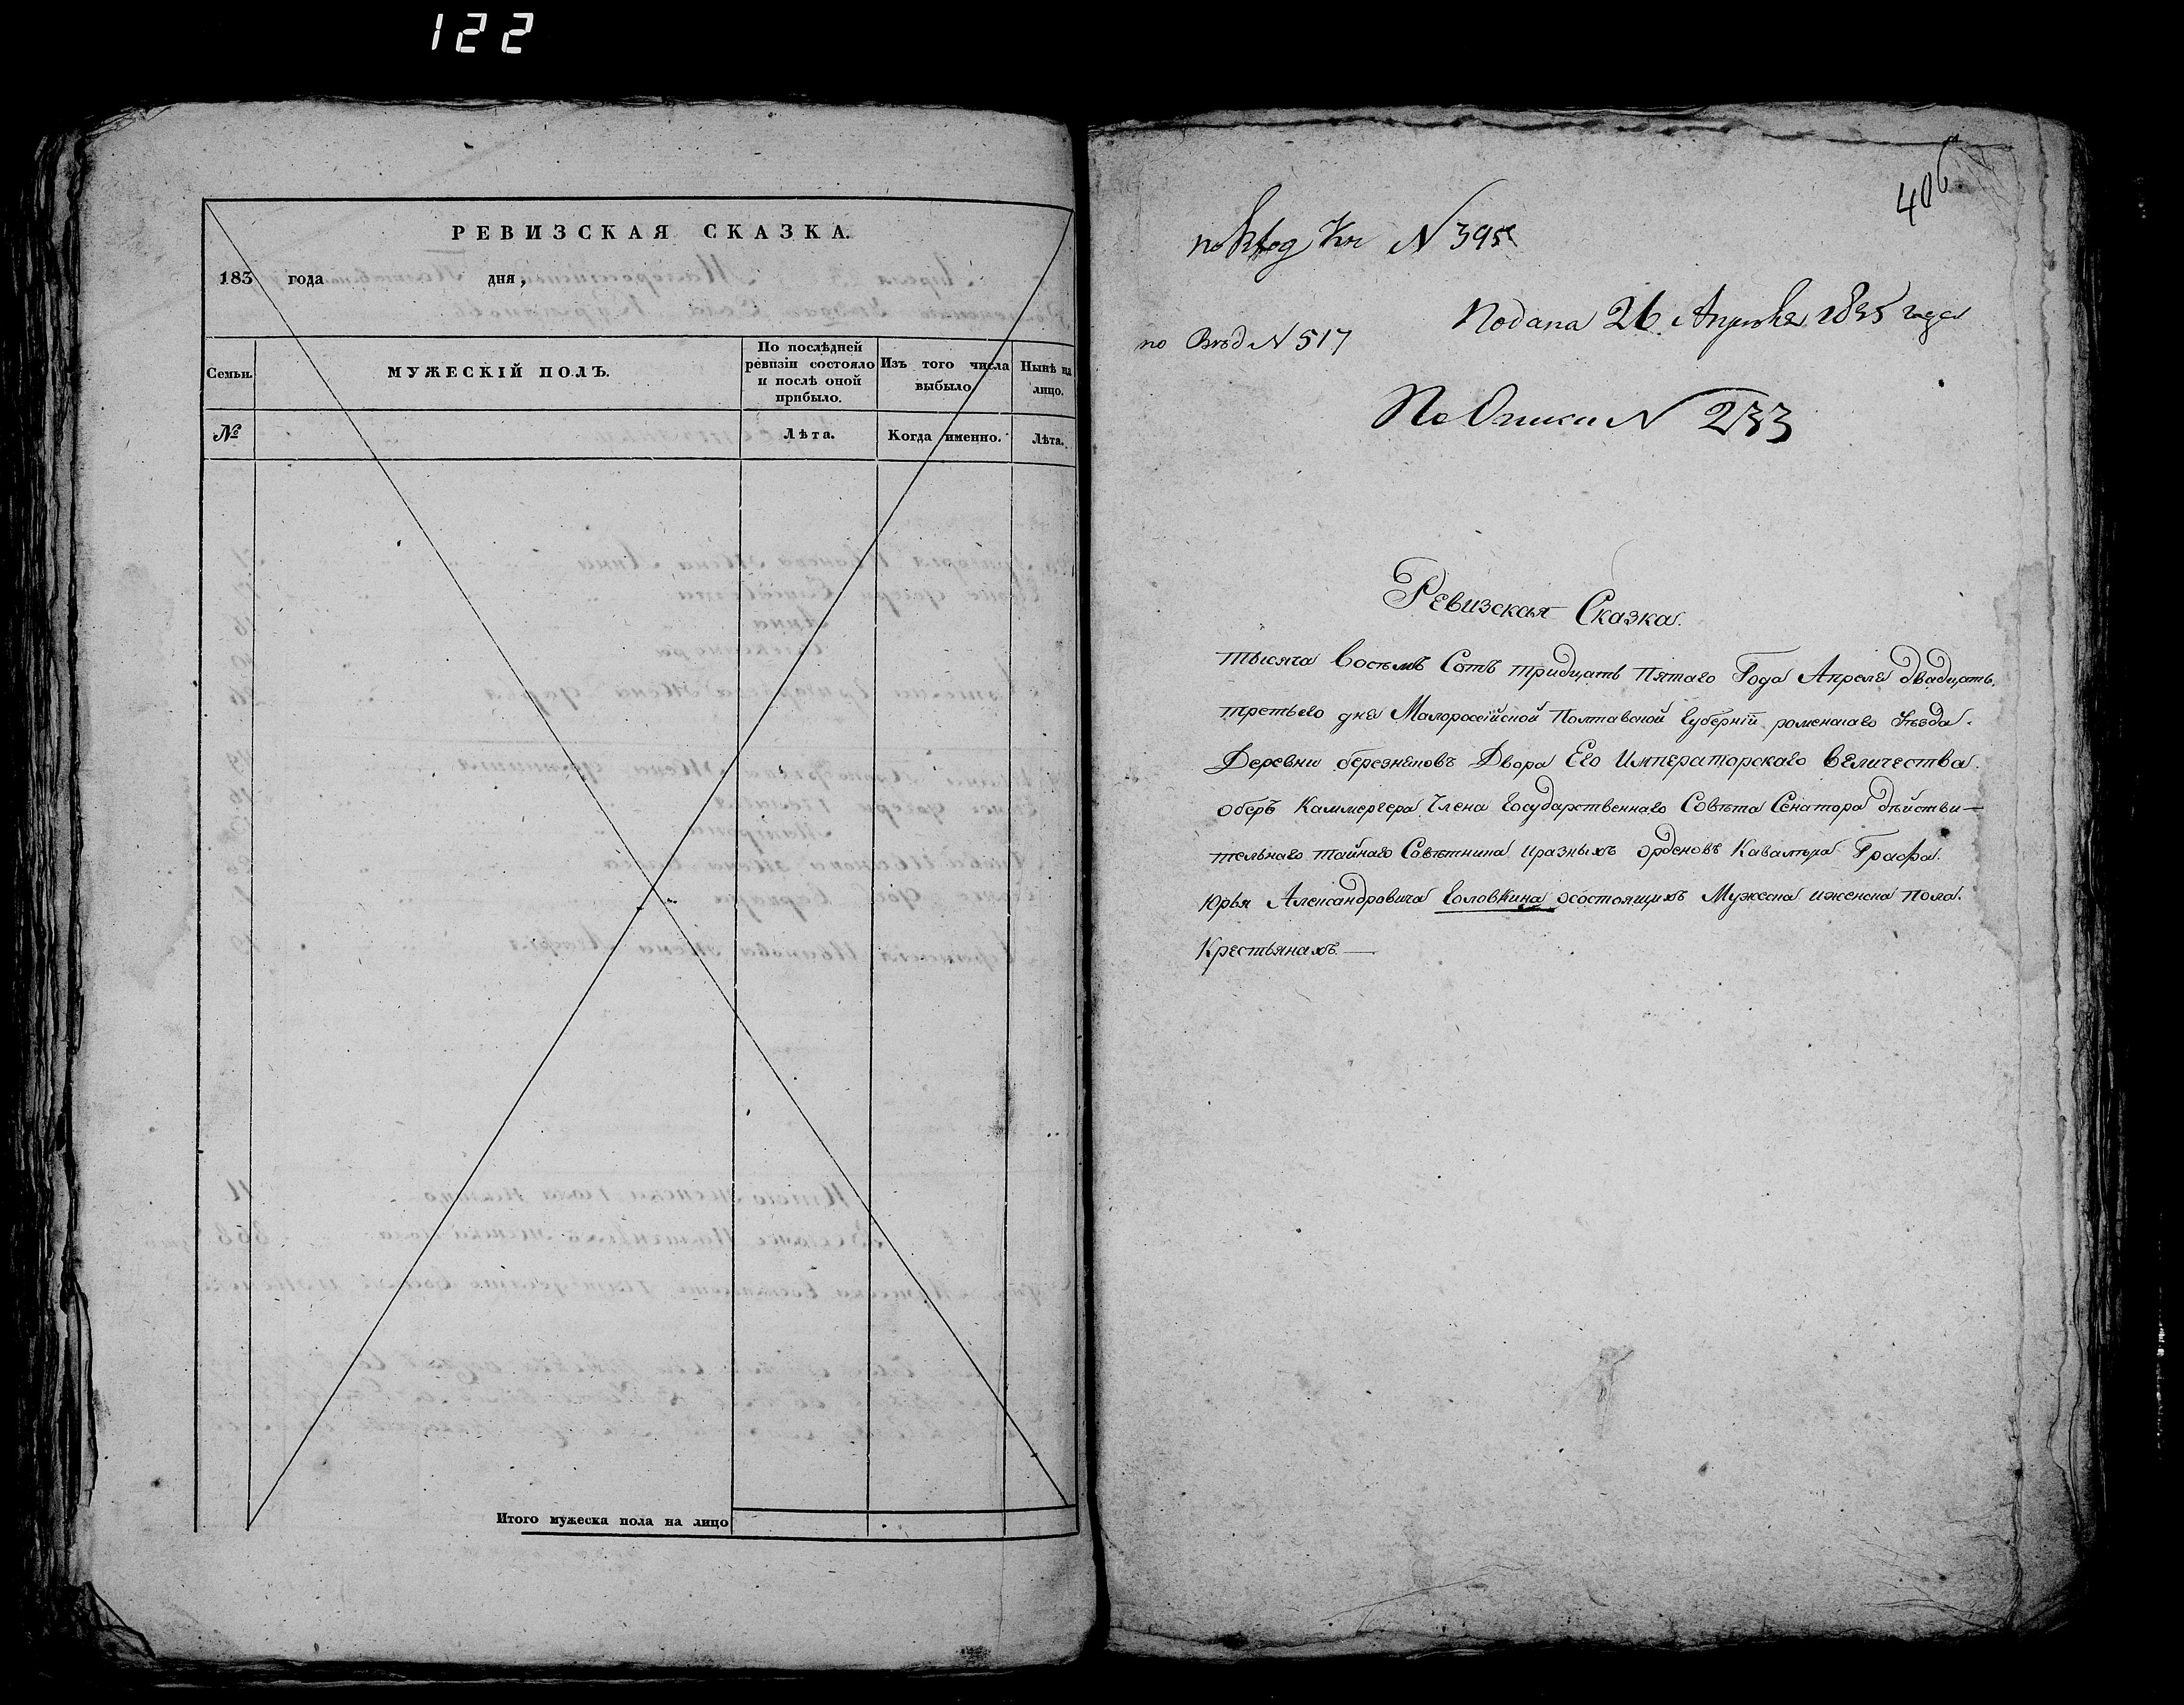 122
РЕВИЗСКАЯ СКАЗКА.
183 года дня,
Семьи. МУЖЕСКІЙ ПОЛЪ. По послѣдней ревизіи состояло и послѣ оной прибыло. Изъ того числа выбыло. Нынѣ на лицо.
№ Лѣта. Когда именно. Лѣта.
Итого мужеска пола на лицо
406
N 395
Подана 26 Апреля 1835 года
по Вѣд N 517
По Описи N 233
Ревизская Сказка.
тысяча восемъ Сотъ тридцать Пятаго Года Апреля двадцать
третьего дня Малороссійской Полтавской Губерніи роменскаго Уѣзда.
Деревни березняковъ Двора Его Императорскаго величества.
оберъ Каммергера Члена Государственнаго Совѣта Сенатора дѣйстви-
тельнаго тайнаго Совѣтника иразныхъ орденовъ Кавалера Графа.
Юрья Александровича Головкина осостоящихъ Мужеска иженска Пола.
Крестьянахъ.—